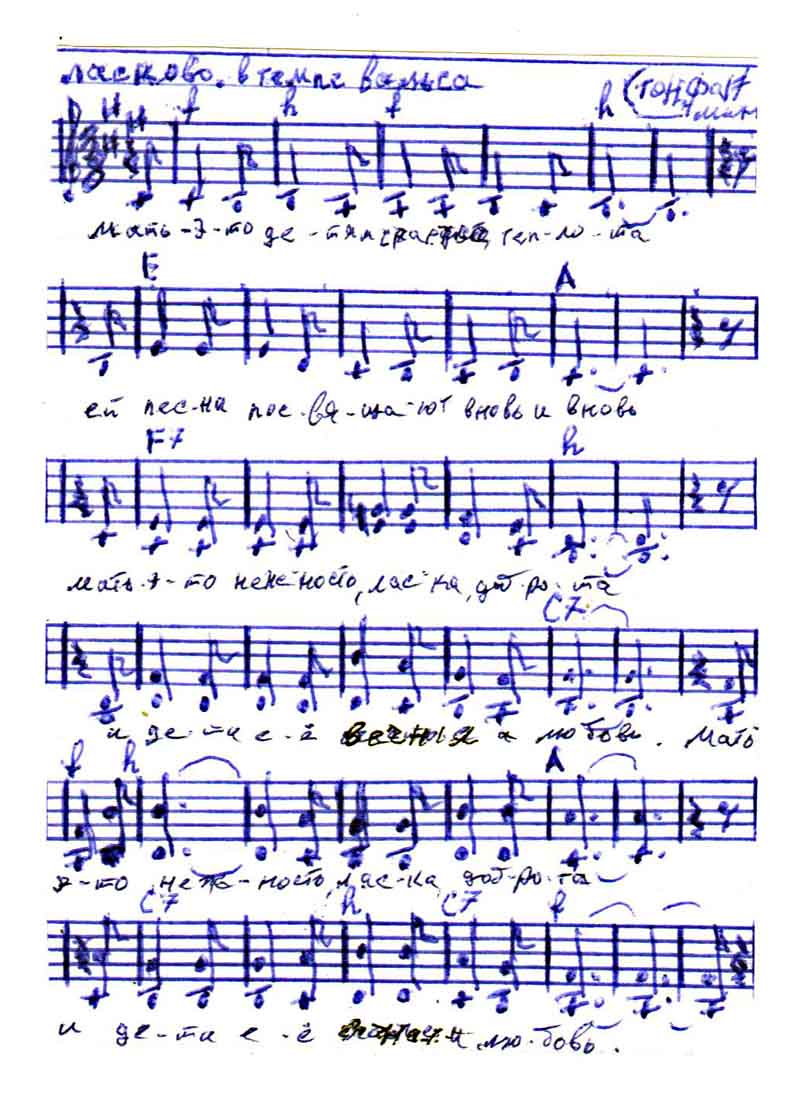 ласково. в темпе вальса
f h f h
Мать-э-то де-тям теп-ло-та
E A
ей пес-на пос-вя-ща-ют вновь и вновь
F7 h
мать-э-то неж-ность, лас-ка, доб-ро-та
C7
и де-ти е-ё любовь. Мать
f h A
э-то неж-ность, лас-ка доб-ро-та
C7 h C7 f
и де-ти е-ё лю-бовь.